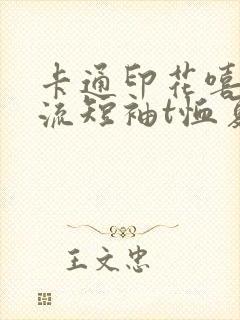 卡通印花嘻
流短袖t恤
王文忠